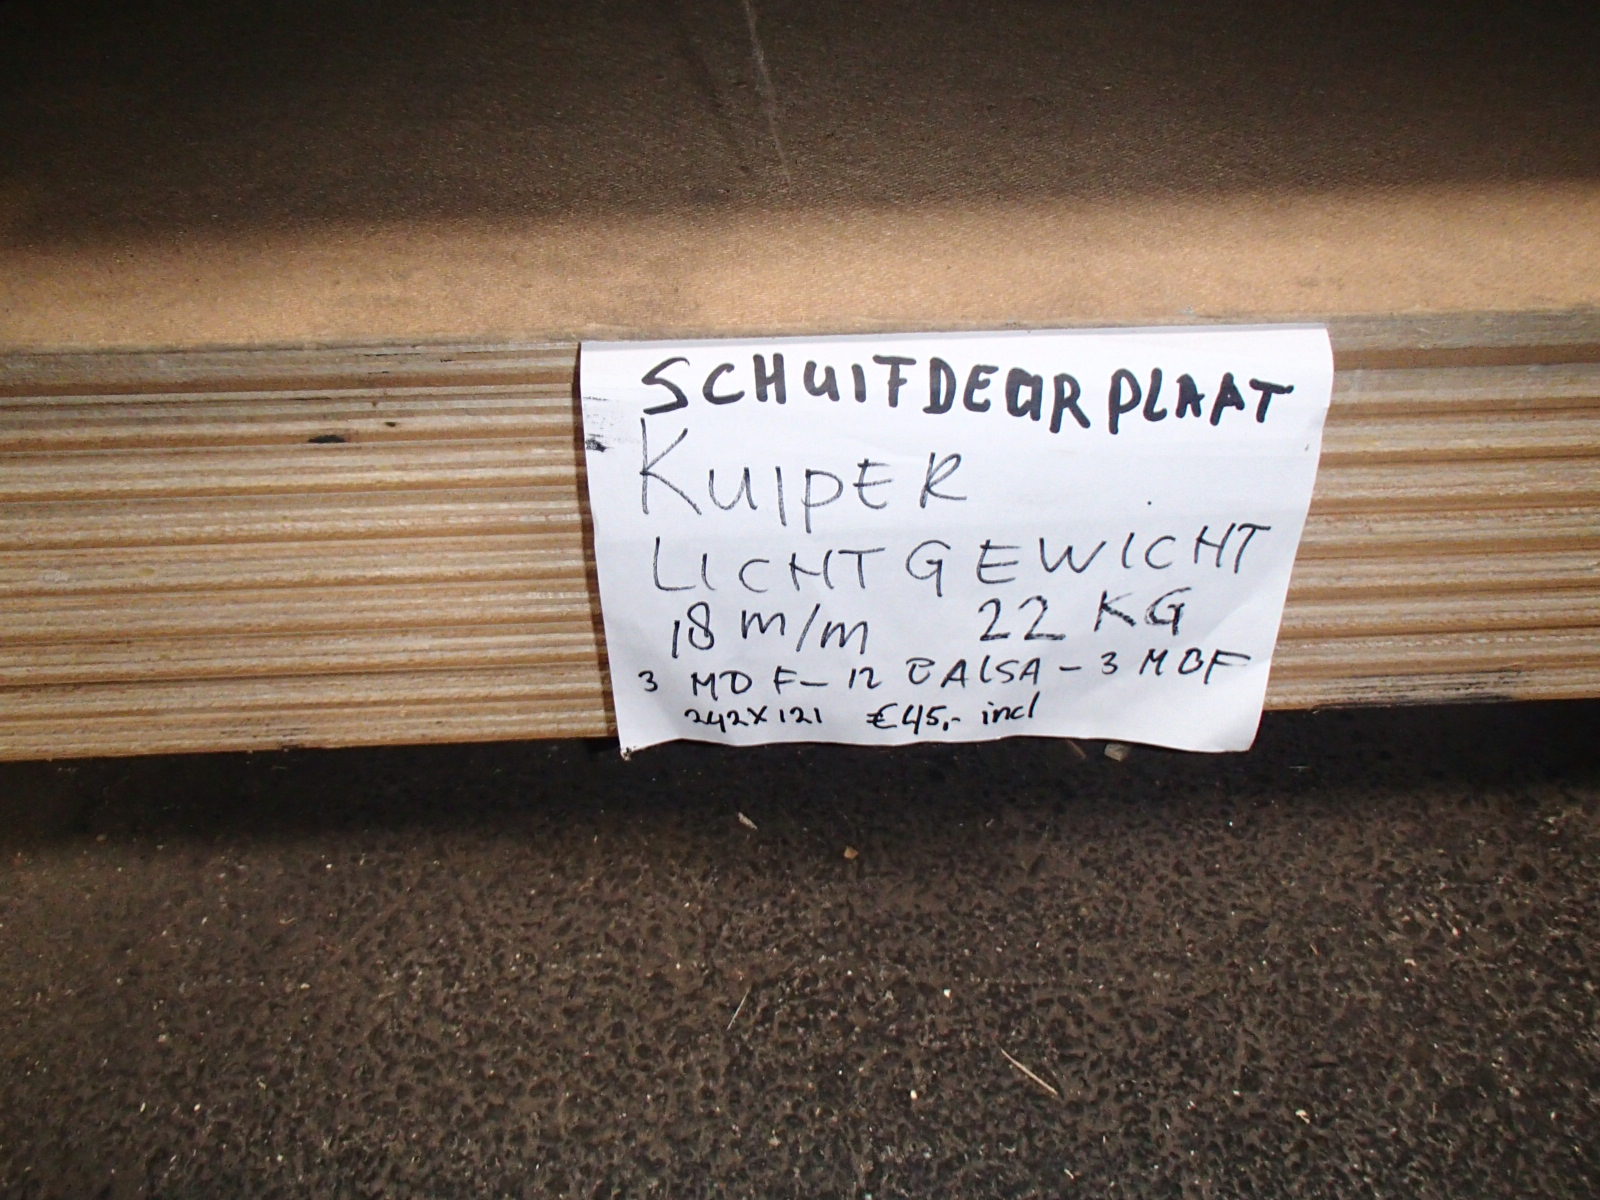 SCHUIFDEURPLAAT
KUIPER
LICHTGEWICHT
18 m/m 22 KG
3 MDF - 12 BALSA - 3 MDF
242X121 €45,- incl